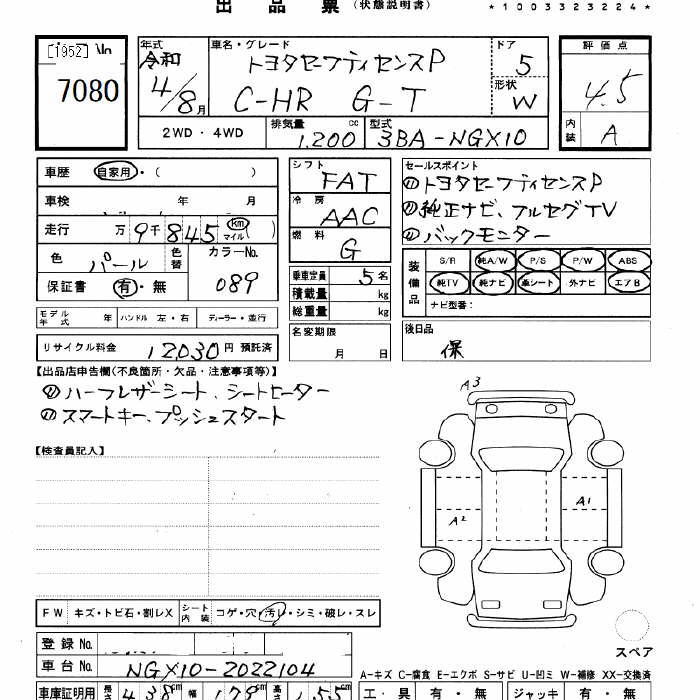 出品票 (状態説明書) *1003323224*
[1952]
7080
年式 令和 4/8月
車名・グレード トヨタセーフティセンスP
C-HR G-T
ドア 5
形状 W
評価点 4.5
内装 A
2WD・4WD 排気量 1,200 cc 型式 3BA-NGX10
車歴 自家用・( )
車検 年 月
走行 万 9千845 km マイル( )
色 パール 色替 カラーNo. 089
保証書 有・無
シフト FAT
冷房 AAC
燃料 G
乗車定員 5名
積載量 kg
総重量 kg
セールスポイント
(1)トヨタセーフティセンスP
(2)純正ナビ、フルセグTV
(3)バックモニター
装備品 S/R 純A/W P/S P/W ABS
純TV 純ナビ 革シート 外ナビ エアB
ナビ型番:
モデル年式 年 ハンドル 左・右 ディーラー・並行
リサイクル料金 12,030円 預託済
名変期限 月 日
後日品 保
【出品店申告欄(不良箇所・欠品・注意事項等)】
(1)ハーフレザーシート、シートヒーター
(2)スマートキー、プッシュスタート
【検査員記入】
A3
A1
A2
スペア
FW キズ・トビ石・割レX シート内装 コゲ・穴・汚レ・シミ・破レ・スレ
登録No.
車台No. NGX10-2022104
A-キズ C-腐食 E-エクボ S-サビ U-凹ミ W-補修 XX-交換済
車庫証明用 長さ 438cm 幅 179cm 高さ 155cm 工・具 有・無 ジャッキ 有・無